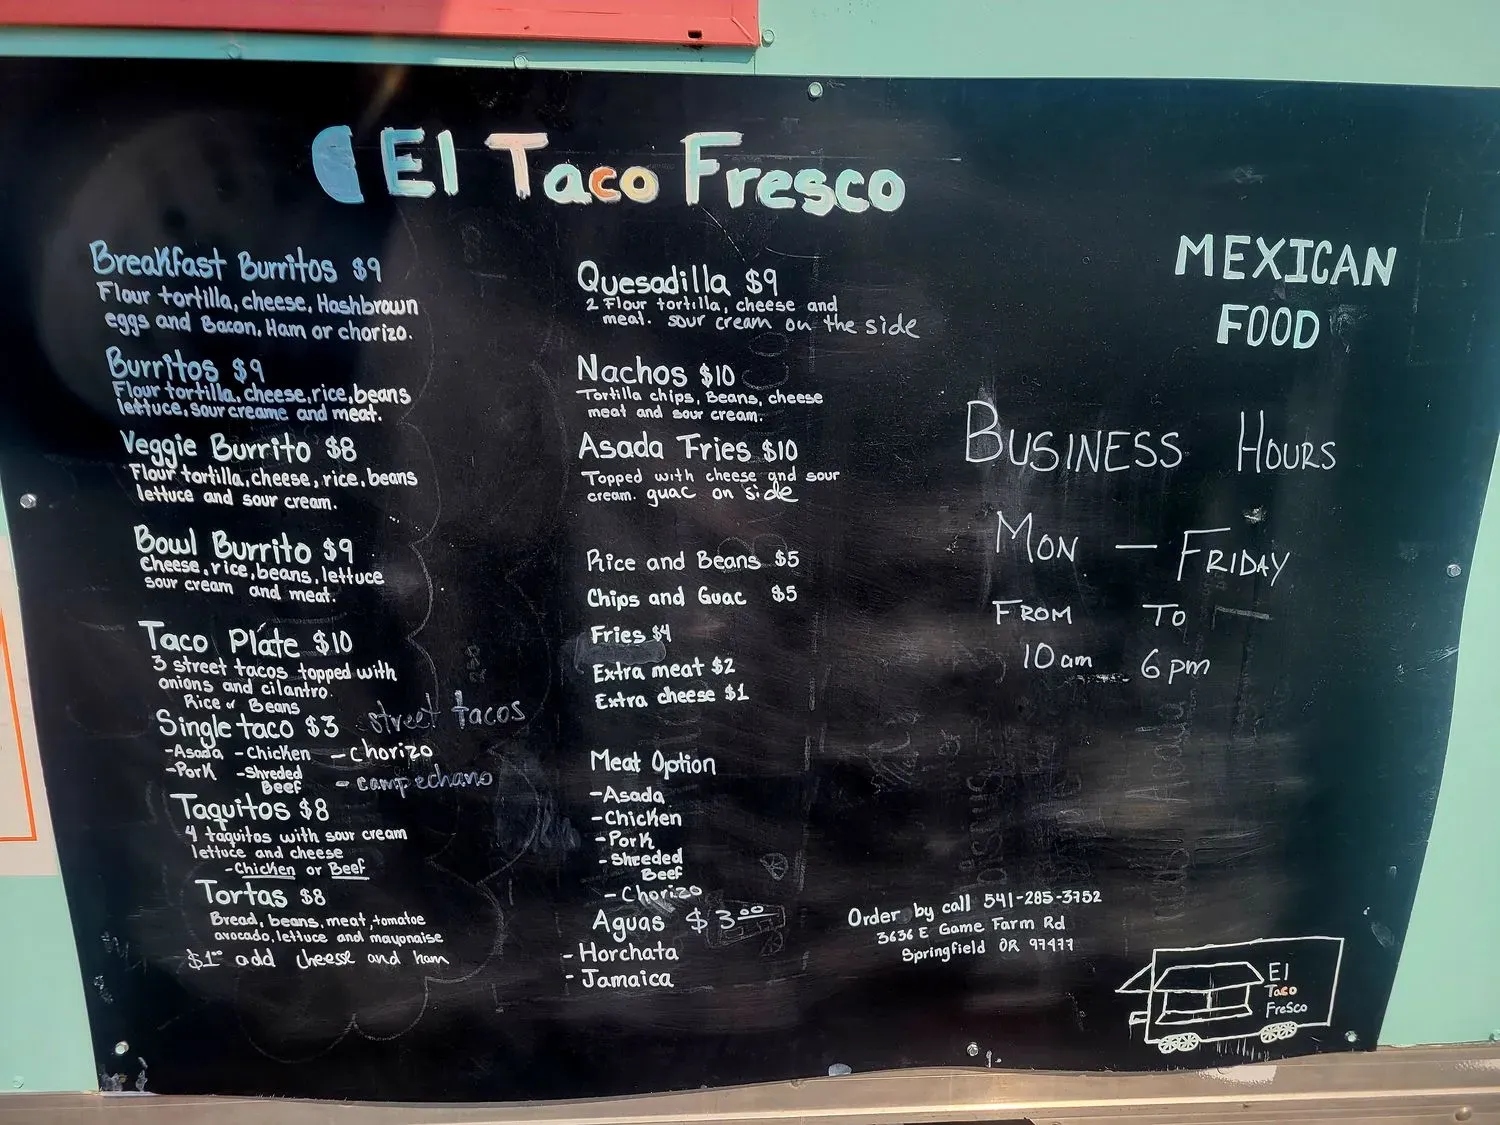 El Taco Fresco
Breakfast Burritos $9
Flour tortilla, cheese, Hashbrown
eggs and Bacon, Ham or chorizo.
Burritos $9
Flour tortilla, cheese, rice, beans
lettuce, sour creame and meat.
Veggie Burrito $8
Flour tortilla, cheese, rice, beans
lettuce and sour cream.
Bowl Burrito $9
Cheese, rice, beans, lettuce
sour cream and meat.
Taco Plate $10
3 street tacos topped with
onions and cilantro.
Rice or Beans
Single taco $3 street tacos
-Asada -Chicken -Chorizo
-Pork -Shreded
Beef
-campechano
Taquitos $8
4 taquitos with sour cream
lettuce and cheese
-Chicken or Beef
Tortas $8
Bread, beans, meat, tomatoe
avocado, lettuce and mayonaise
$1.00 add cheese and ham
Quesadilla $9
2 Flour tortilla, cheese and
meat. sour cream on the side
Nachos $10
Tortilla chips, Beans, cheese
meat and sour cream.
Asada Fries $10
Topped with cheese and sour
cream. guac on side
Rice and Beans $5
Chips and Guac $5
Fries $4
Extra meat $2
Extra cheese $1
Meat Option
-Asada
-Chicken
-Pork
-Shreded
Beef
-Chorizo
Aguas $3.00
-Horchata
-Jamaica
MEXICAN
FOOD
BUSINESS HOURS
MON — FRIDAY
FROM TO
10am 6pm
Order by call 541-285-3752
3636 E Game Farm Rd
Springfield OR 97477
El
Taco
Fresco